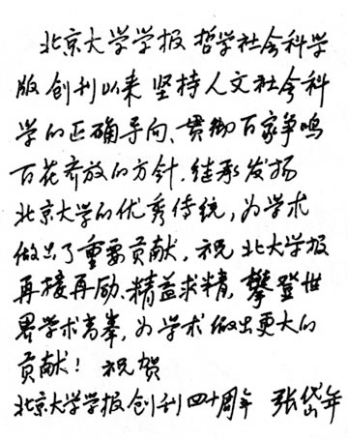 北京大学学报 哲学社会科学
版创刊以来 坚持人文社会科
学的正确导向、贯彻百家争鸣
百花齐放的方针.继承发扬
北京大学的优秀传统,为学术
做出了重要贡献,祝北大学报
再接再励、精益求精,攀登世
界学术高峯,为学术做出更大的
贡献! 祝贺
北京大学学报创刊四十周年 张岱年